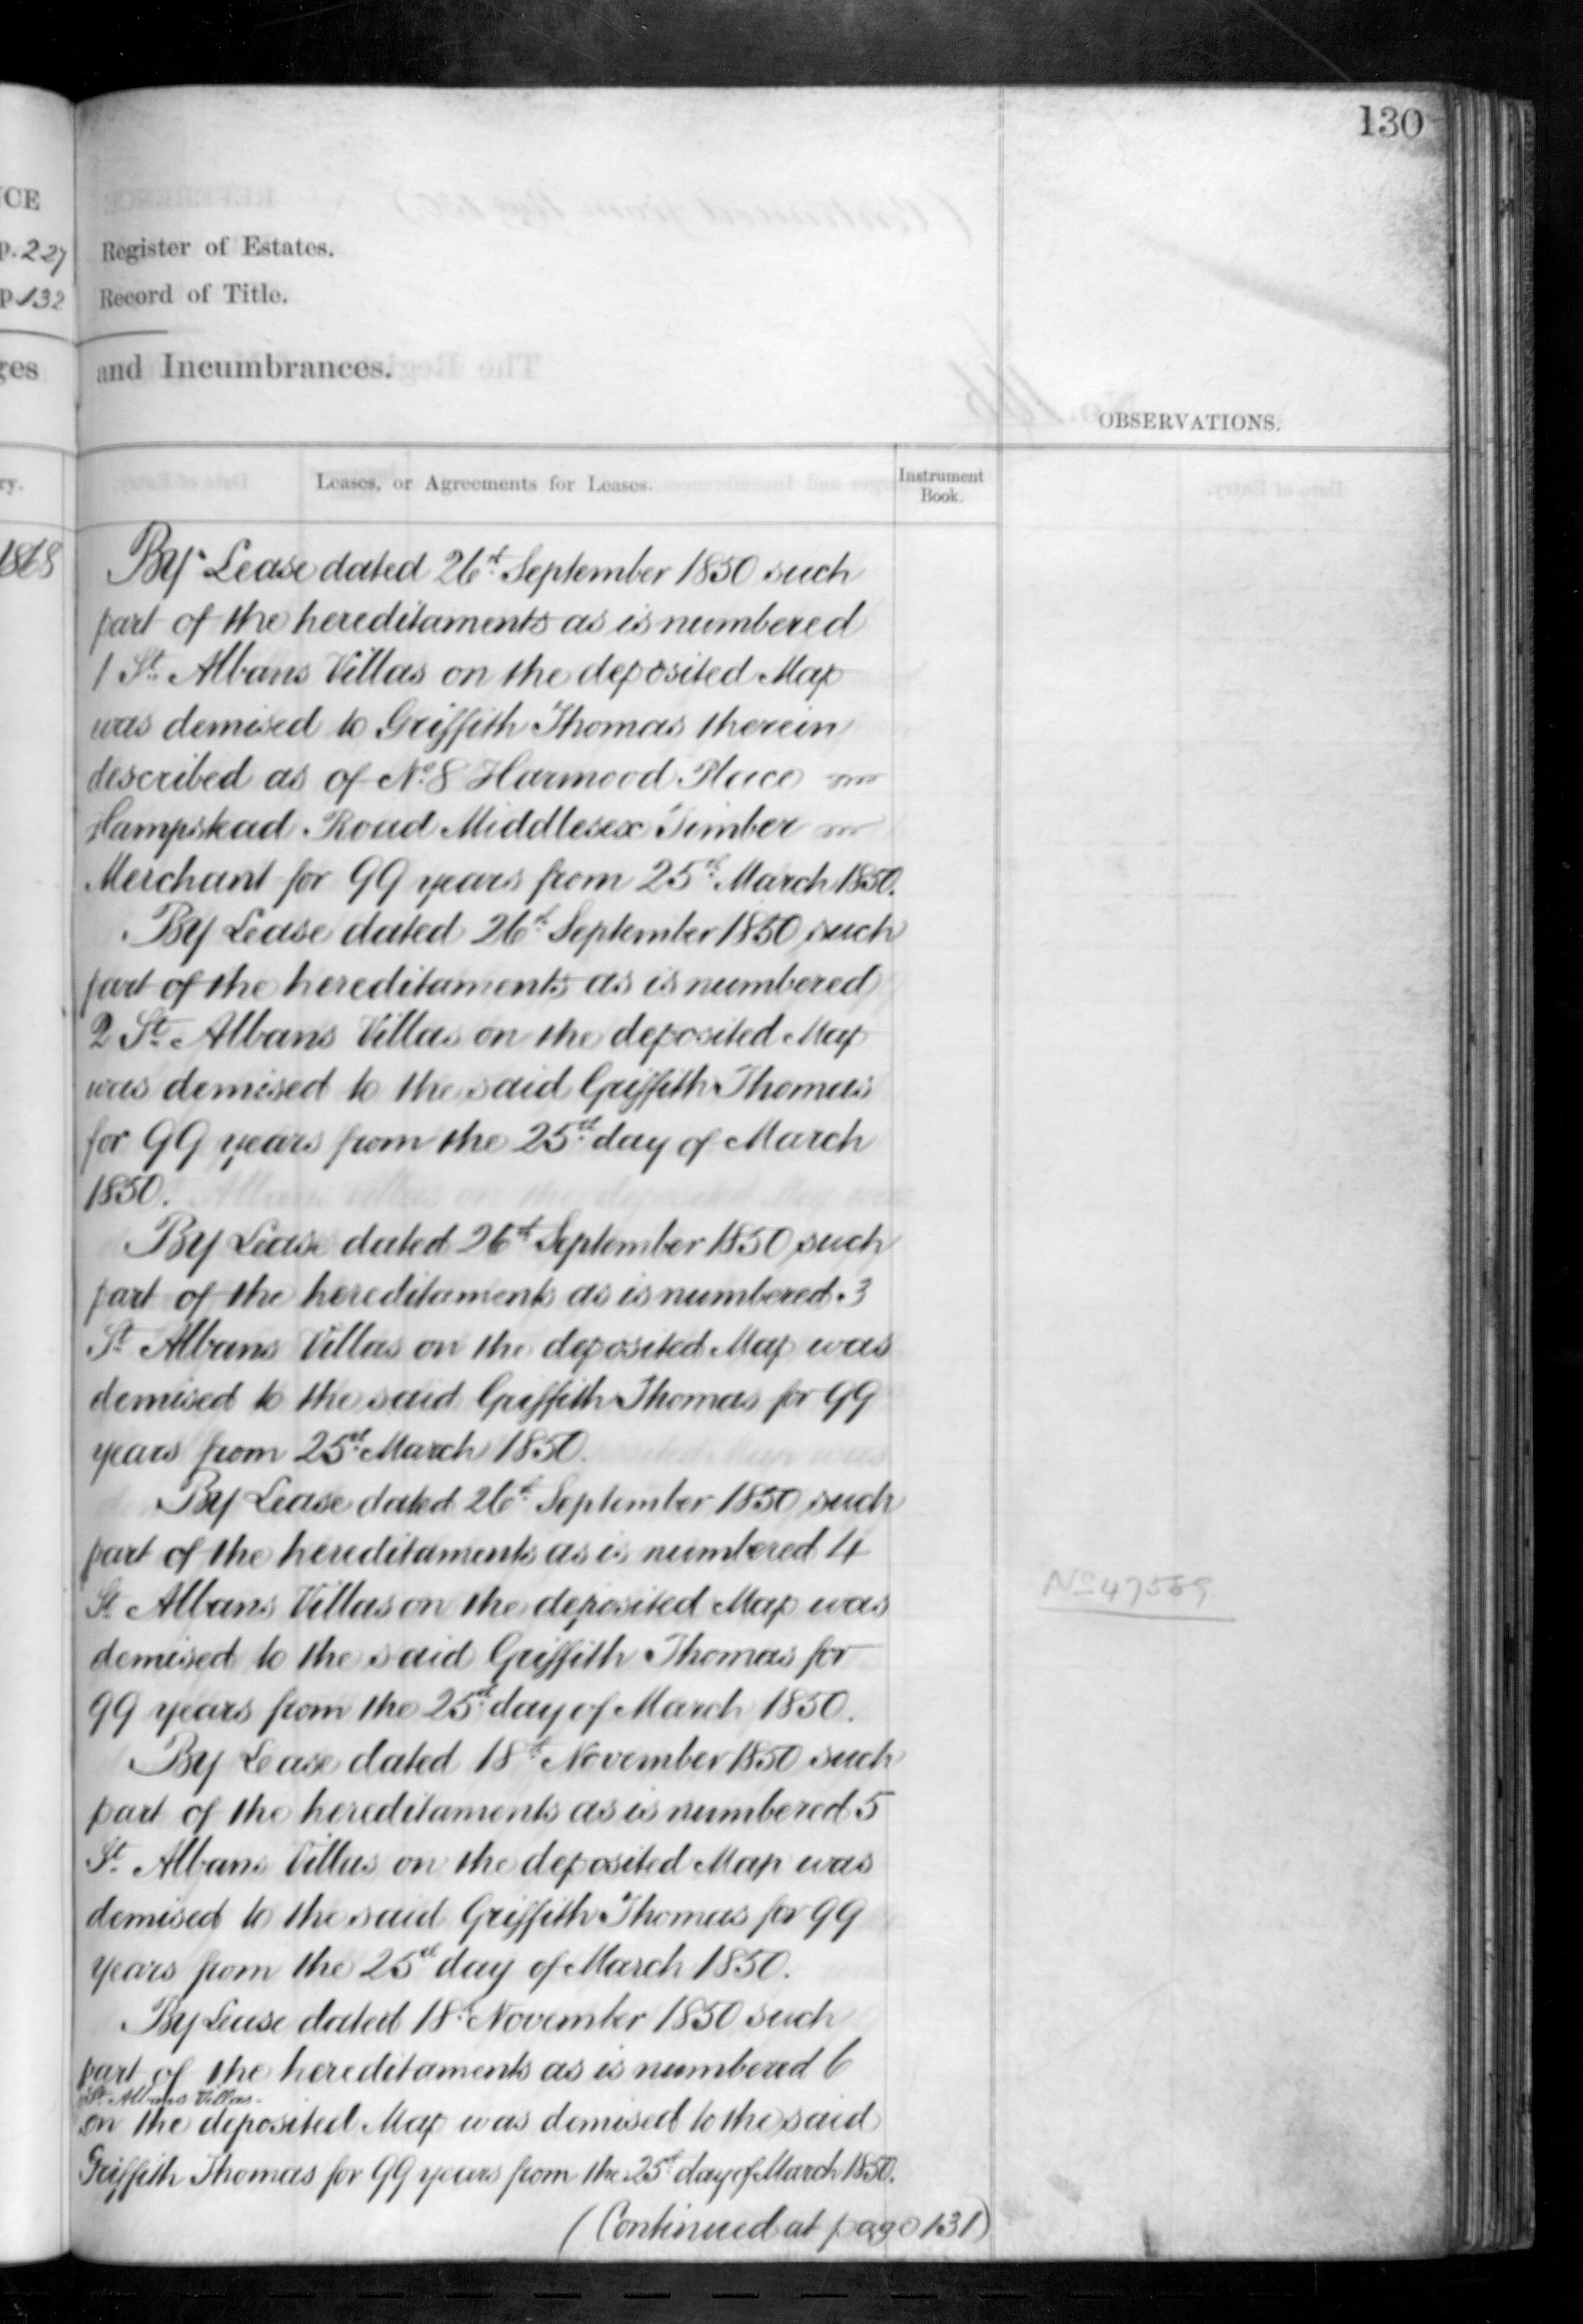 130
CE
p. 227 Register of Estates.
p 132 Record of Title.
ges and Incumbrances.
OBSERVATIONS.
ry. Leases, or Agreements for Leases. Instrument Book.
1868 By Lease dated 26th September 1850 such
part of the hereditaments as is numbered
1 St. Albans Villas on the deposited Map
was demised to Griffith Thomas therein
described as of No. 8 Harmood Place
Hampstead Road Middlesex Timber
Merchant for 99 years from 25th March 1850.
By Lease dated 26th September 1850 such
part of the hereditaments as is numbered
2 St. Albans Villas on the deposited Map
was demised to the said Griffith Thomas
for 99 years from the 25th day of March
1850.
By Lease dated 26th September 1850 such
part of the hereditaments as is numbered 3
St. Albans Villas on the deposited Map was
demised to the said Griffith Thomas for 99
years from 25th March 1850.
By Lease dated 26th September 1850 such
part of the hereditaments as is numbered 4
St. Albans Villas on the deposited Map was
demised to the said Griffith Thomas for
99 years from the 25th day of March 1850.
By Lease dated 18th November 1850 such
part of the hereditaments as is numbered 5
St. Albans Villas on the deposited Map was
demised to the said Griffith Thomas for 99
years from the 25th day of March 1850.
By Lease dated 18th November 1850 such
part of the hereditaments as is numbered 6
St. Albans Villas
on the deposited Map was demised to the said
Griffith Thomas for 99 years from the 25th day of March 1850.
(Continued at page 131)